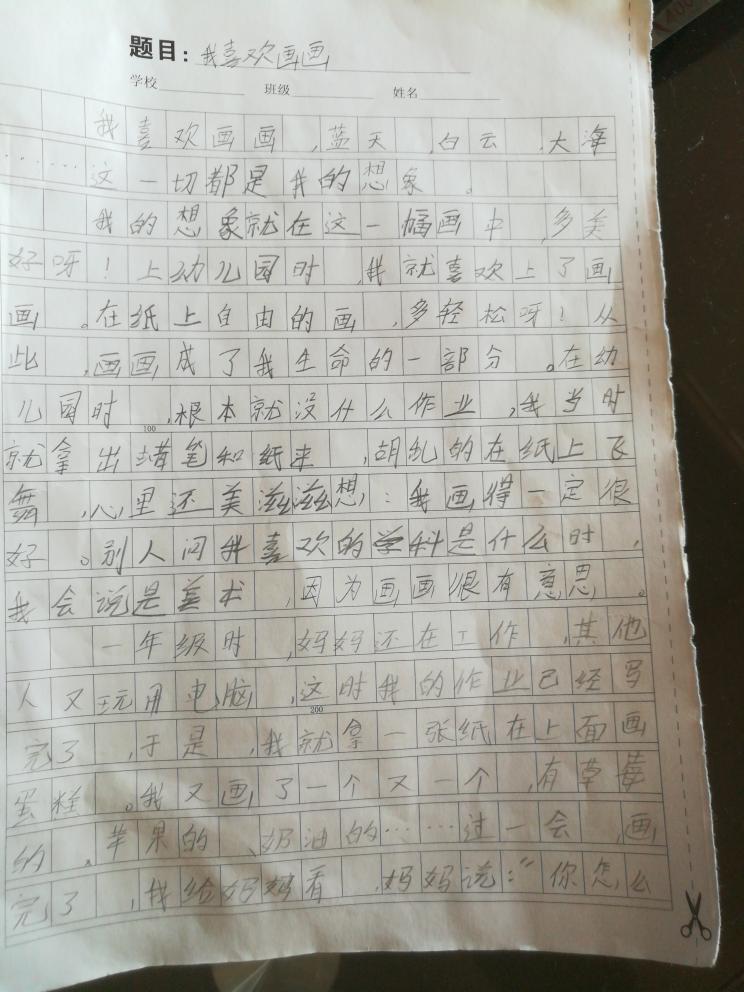 题目：我喜欢画画
学校 班级 姓名
我喜欢画画，蓝天，白云，大海
……这一切都是我的想象。
我的想象就在这一幅画中，多美
好呀！上幼儿园时，我就喜欢上了画
画。在纸上自由的画，多轻松呀！从
此，画画成了我生命的一部分。在幼
儿园时，根本就没什么作业，我当时
100
就拿出蜡笔和纸来，胡乱的在纸上飞
舞，心里还美滋滋想：我画得一定很
好。别人问我喜欢的学科是什么时，
我会说是美术，因为画画很有意思。
一年级时，妈妈还在工作，其他
人又玩用电脑，这时我的作业已经写
200
完了，于是，我就拿一张纸在上面画
蛋糕。我又画了一个又一个，有草莓
的。苹果的、奶油的……过一会，画
完了，我给妈妈看，妈妈说：“你怎么